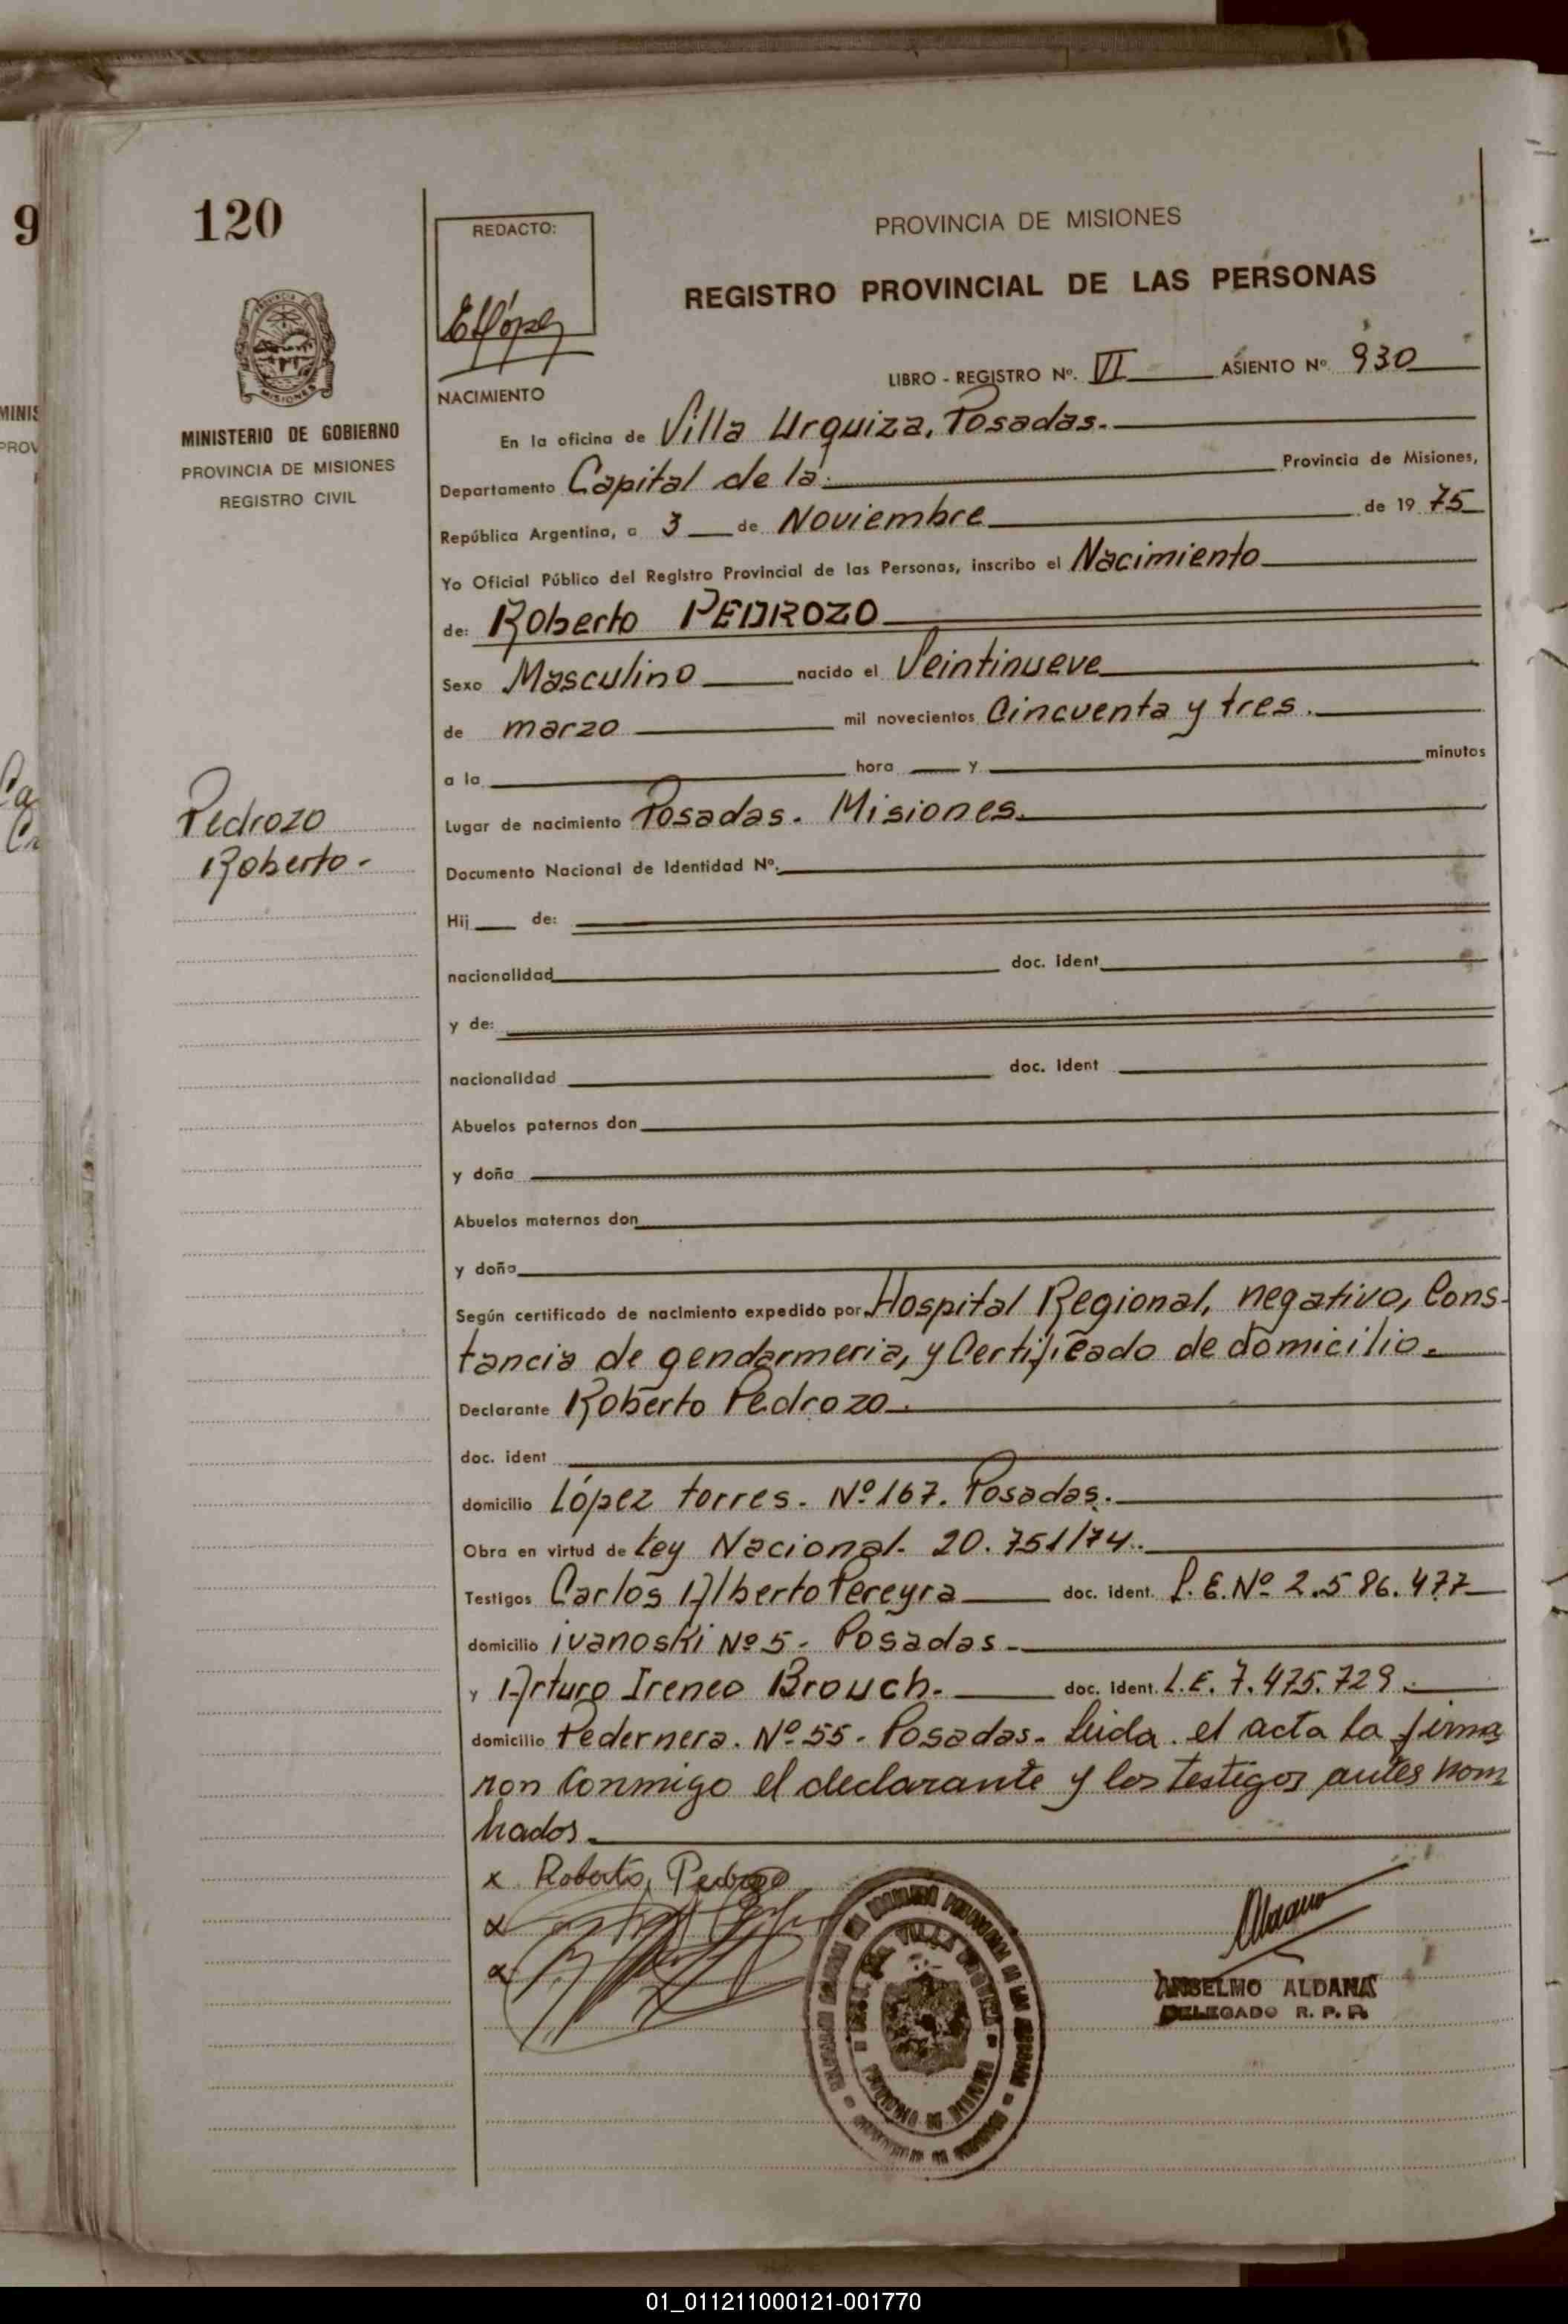 9
120
REDACTO:
ELópez
PROVINCIA DE MISIONES
REGISTRO PROVINCIAL DE LAS PERSONAS
PROVINCIA DE
MISIONES
MINISTERIO DE GOBIERNO
PROVINCIA DE MISIONES
REGISTRO CIVIL
MINIS
PROV
LIBRO - REGISTRO Nº. VI ASIENTO Nº 930
NACIMIENTO
En la oficina de Villa Urquiza, Posadas.
Departamento Capital de la. Provincia de Misiones,
República Argentina, a 3 de Noviembre de 19 75
Yo Oficial Público del Registro Provincial de las Personas, inscribo el Nacimiento
de: Roberto PEDROZO
Sexo Masculino nacido el Veintinueve
de marzo mil novecientos Cincuenta y tres.
a la hora y minutos
Pedrozo
Roberto-
Lugar de nacimiento Posadas. Misiones.
Documento Nacional de Identidad Nº.
Hij de:
nacionalidad doc. ident
y de:
nacionalidad doc. ident
Abuelos paternos don
y doña
Abuelos maternos don
y doña
Según certificado de nacimiento expedido por Hospital Regional, negativo, Cons-
tancia de gendarmeria, y Certificado de domicilio.
Declarante Roberto Pedrozo.
doc. ident
domicilio López torres. Nº 167. Posadas.
Obra en virtud de Ley Nacional. 20.751/74.
Testigos Carlos Alberto Pereyra doc. ident. L.E. Nº 2.586.477
domicilio ivanoski Nº 5- Posadas-
y Arturo Ireneo Brouch. doc. ident. L.E. 7.475.729.
domicilio Pedernera. Nº 55- Posadas. Leida el acta la firma
ron conmigo el declarante y los testigos antes nom
brados.
x Roberto Pedrozo
x
x
Aldana
ANSELMO ALDANA
DELEGADO R. P. P.
VILLA URQUIZA
01_011211000121-001770